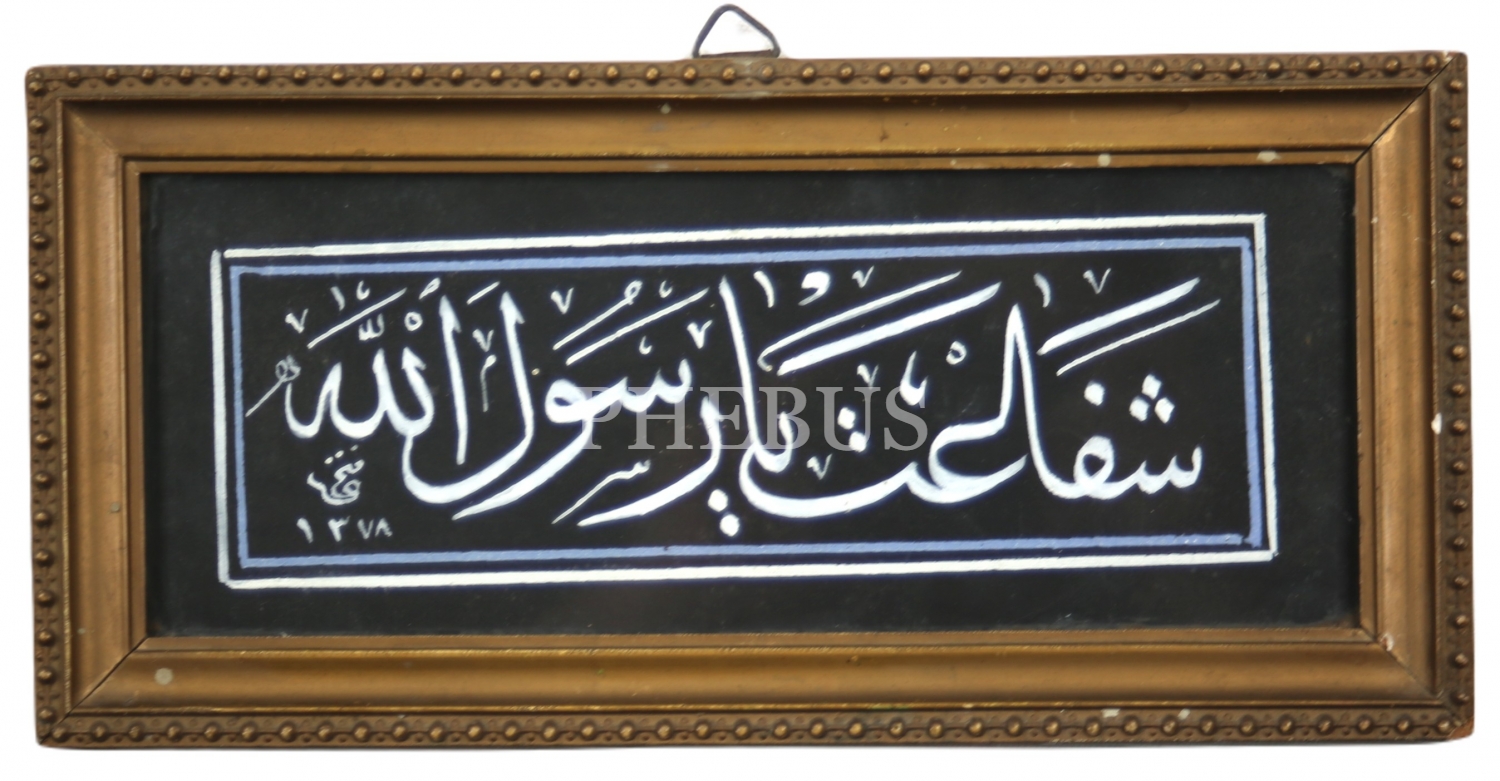 شفاعت يا رسول الله
فتحي
١٣٧٨
PHEBUS